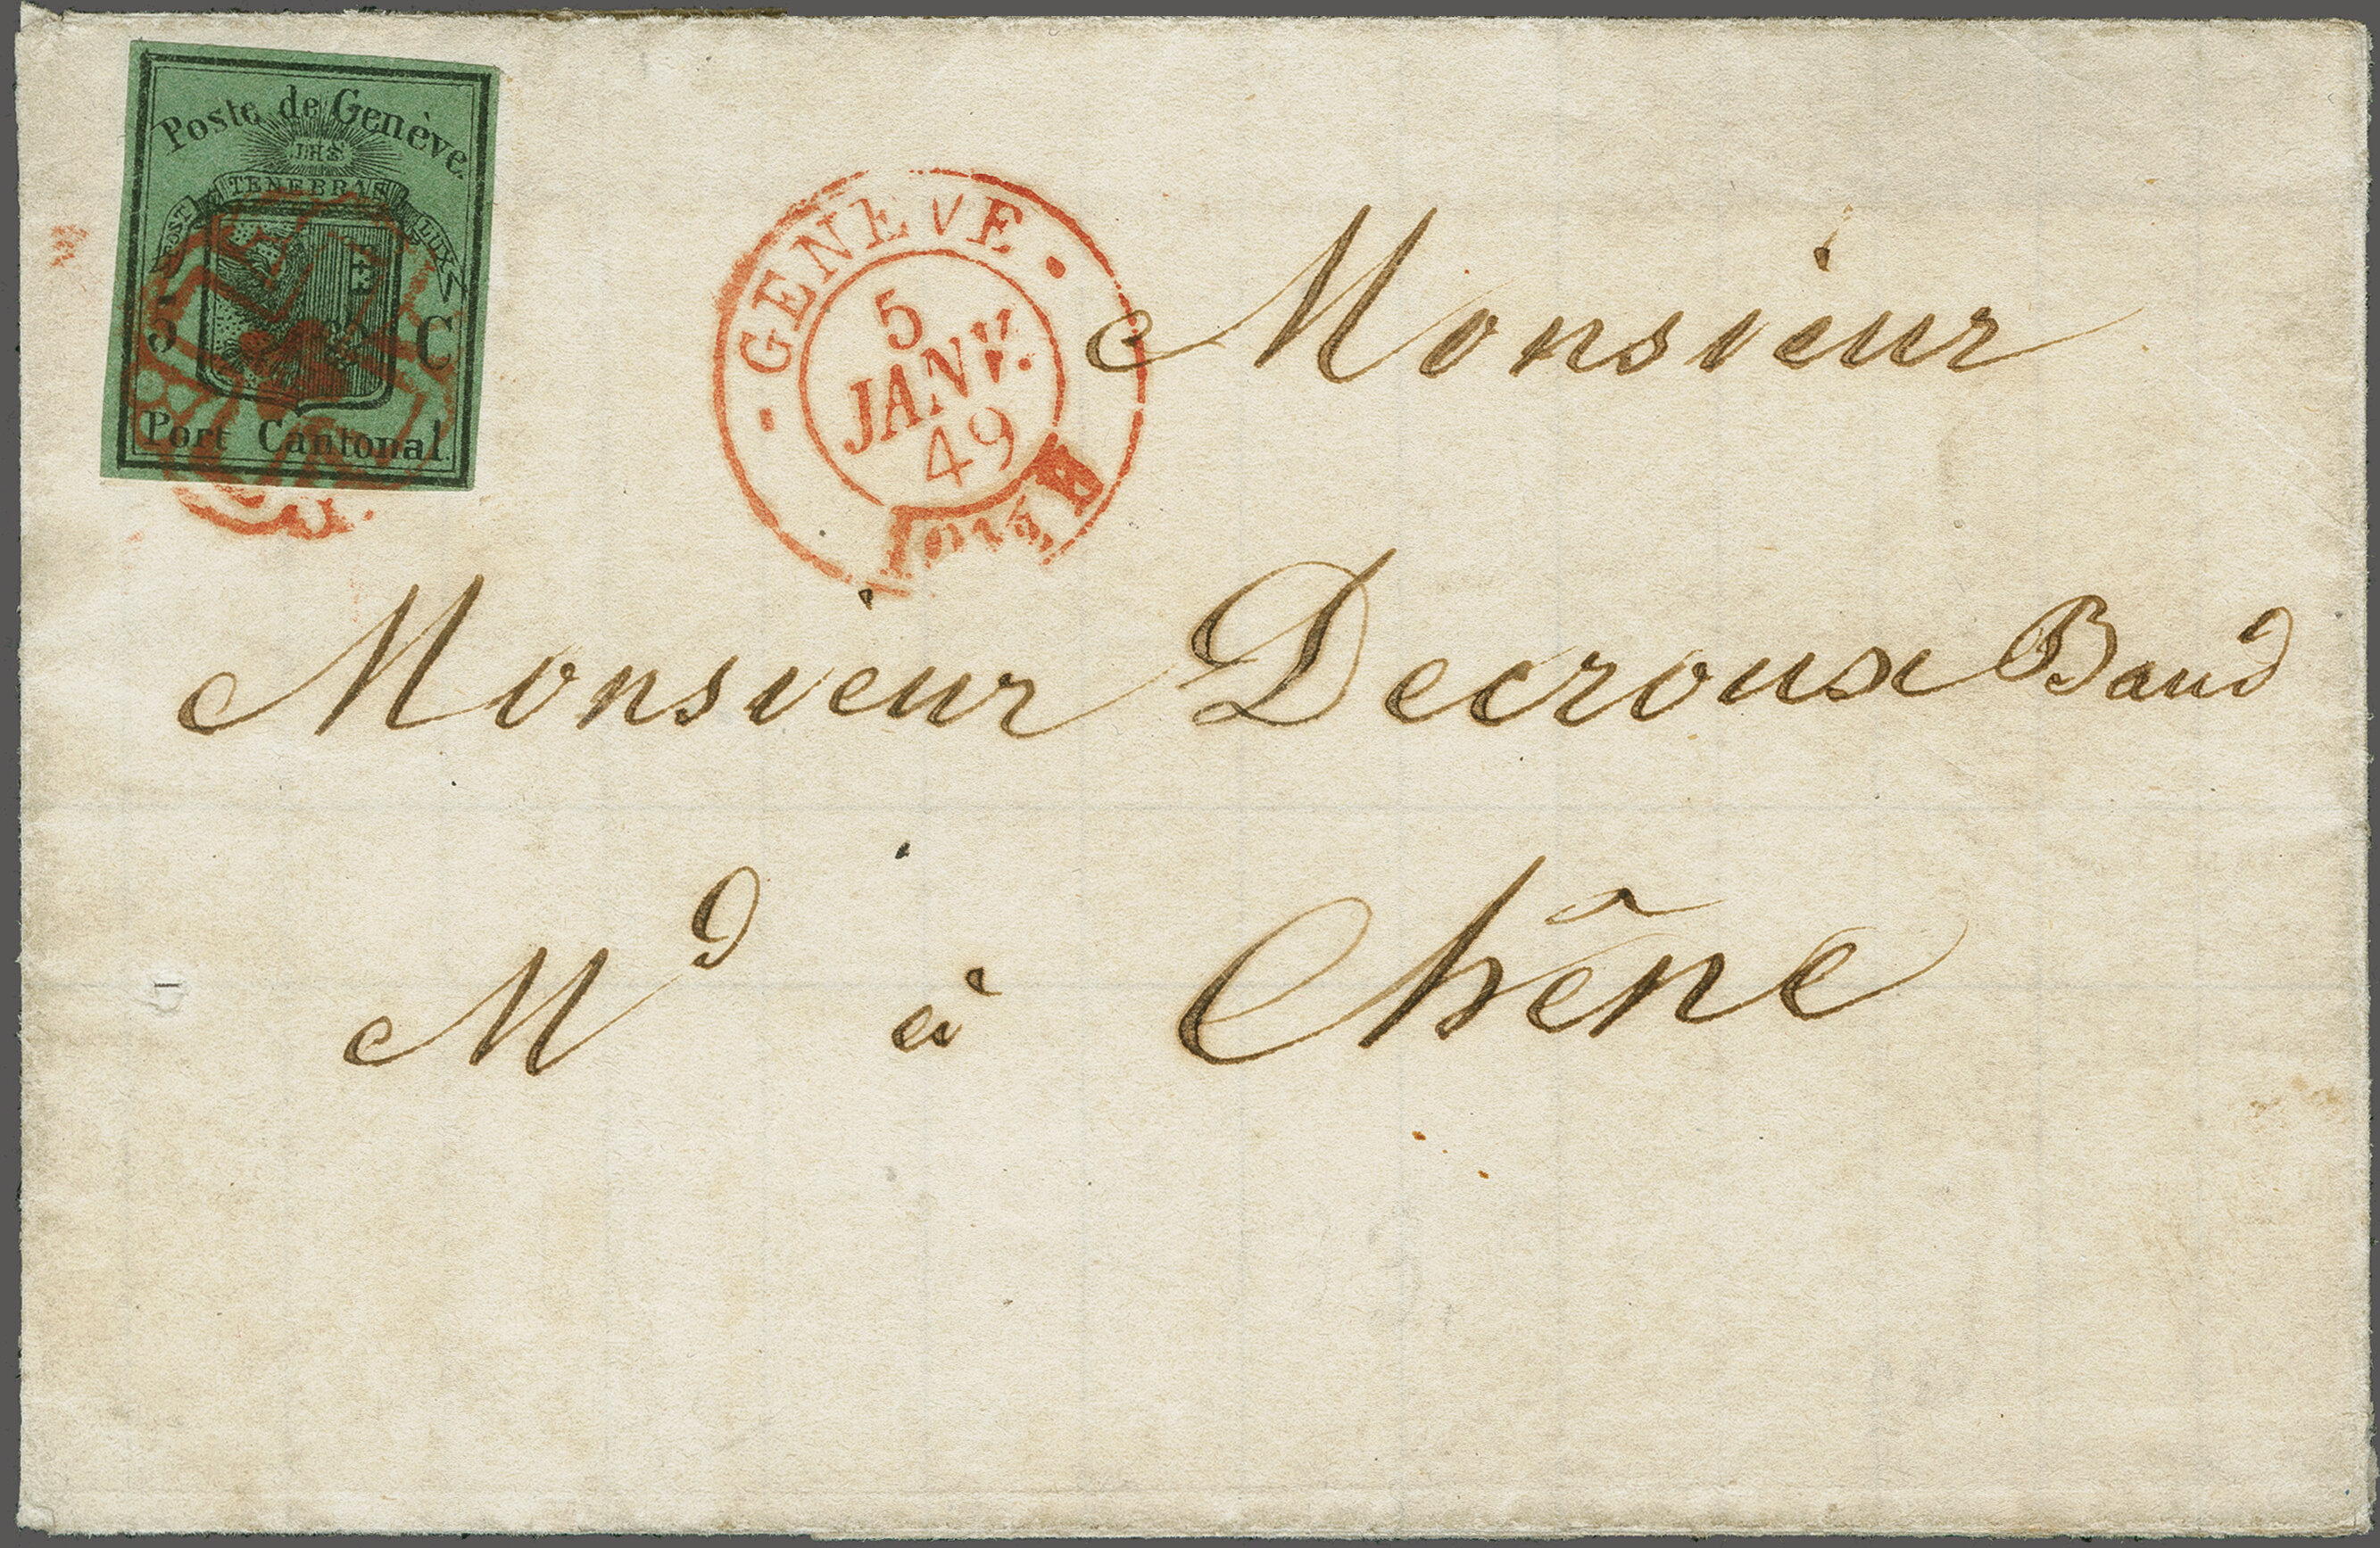 Poste de Genève.
JHS
POST TENEBRAS LUX
5 C
Port Cantonal.
GENEVE
5
JANV.
49
Monsieur
Monsieur Decroux Baud
Md à Chêne